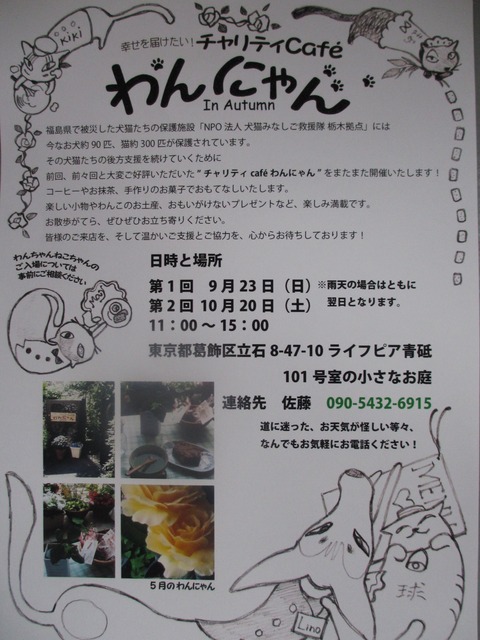 KiKi
幸せを届けたい!チャリティCafé
わんにゃん
In Autumn
福島県で被災した犬猫たちの保護施設「NPO法人 犬猫みなしご救援隊 栃木拠点」には
今なお犬約90匹、猫約300匹が保護されています。
その犬猫たちの後方支援を続けていくために
前回、前々回と大変ご好評いただいた“チャリティcaféわんにゃん”をまたまた開催いたします!
コーヒーやお抹茶、手作りのお菓子でおもてなしいたします。
楽しい小物やわんこのお土産、おもいがけないプレゼントなど、楽しみ満載です。
お散歩がてら、ぜひぜひお立ち寄りください。
皆様のご来店を、そして温かいご支援とご協力を、心からお待ちしております!
わんちゃんねこちゃんの
ご入場については
事前にご相談ください
日時と場所
第1回 9月23日(日)※雨天の場合はともに
第2回 10月20日(土) 翌日となります。
11:00~15:00
東京都葛飾区立石8-47-10ライフピア青砥
101号室の小さなお庭
連絡先 佐藤 090-5432-6915
道に迷った、お天気が怪しい等々、
なんでもお気軽にお電話ください!
5月のわんにゃん
MENU
球
Lino